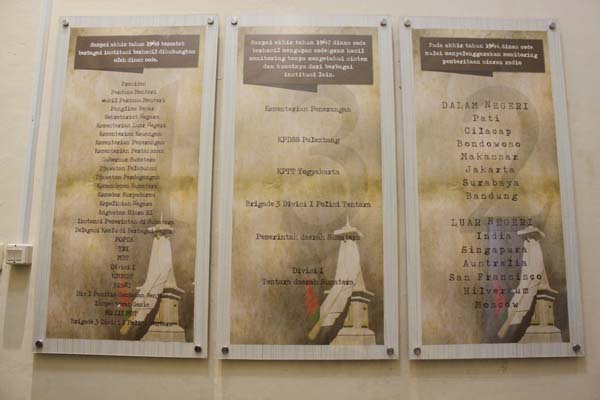 Sampai akhir tahun 1948 tercatat
berbagai institusi berhasil dihubungkan
oleh dinas code.
Presiden
Perdana Menteri
Wakil Perdana Menteri
Panglima Besar
Sekretariat Negara
Kementerian Luar Negeri
Kementerian Keuangan
Kementerian Penerangan
Kementerian Pertahanan
Gubernur Sumatera
Djawatan Pelabuhan
Djawatan Perdagangan
Kementerian Kesehatan
Komodor Suryadarma
Kepolisian Negara
Angkatan Udara RI
Instansi Pemerintah di Sumatera
Delegasi Kecil di Berbagai Negara
POPDA
TNI
MBT
Divisi I
Brigade 3 Divisi I Polisi Tentara
Sampai akhir tahun 1947 dinas code
berhasil mengupas code-gans hasil
monitoring tanpa mengetahui sistem
dan kuncinya dari berbagai
institusi lain.
Kementerian Penerangan
KPDSS Palembang
KPTT Yogyakarta
Brigade 3 Divisi I Polisi Tentara
Pemerintah daerah Sumatera
Divisi I
Tentara daerah Sumatera
Pada akhir tahun 1946 dinas code
mulai menyelenggarakan monitoring
pemberitaan siaran radio
DALAM NEGERI
Pati
Cilacap
Bondowoso
Makassar
Jakarta
Surabaya
Bandung
LUAR NEGERI
India
Singapura
Australia
San Fransisco
Hilversum
Moscow